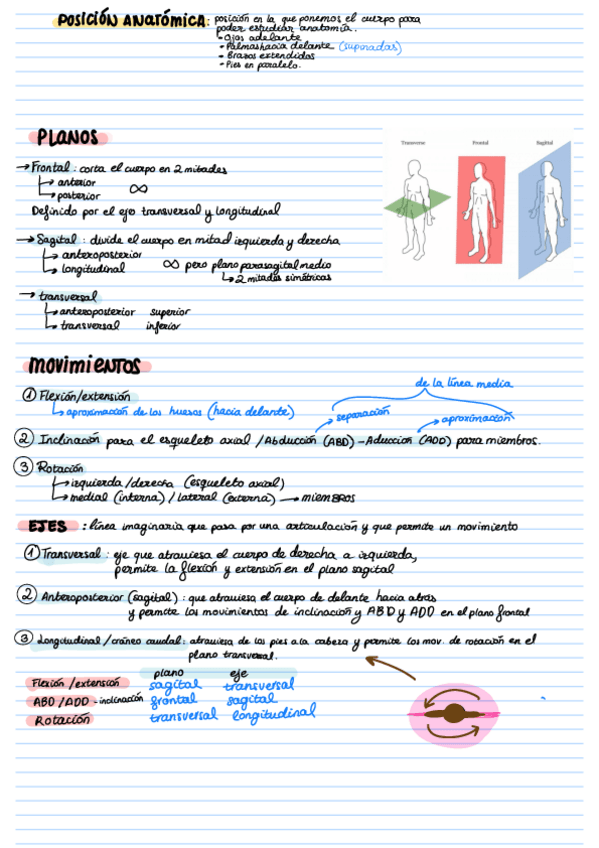 POSICIÓN ANATÓMICA: posición en la que ponemos el cuerpo para
poder estudiar anatomía.
- Ojos adelante
- Palmas hacia delante (supinadas)
- Brazos extendidos
- Pies en paralelo.
PLANOS
Transverse Frontal Sagittal
→ Frontal: corta el cuerpo en 2 mitades
↳ anterior ∞
↳ posterior
Definido por el eje transversal y longitudinal
→ Sagital: divide el cuerpo en mitad izquierda y derecha
↳ anteroposterior
↳ longitudinal ∞ pero plano parasagital medio
↳ 2 mitades simétricas
→ transversal
↳ anteroposterior superior
↳ transversal inferior
MOVIMIENTOS
de la línea media
① Flexión/extensión
↳ aproximación de los huesos (hacia delante) separación aproximación
② Inclinación para el esqueleto axial / Abducción (ABD) - Aducción (ADD) para miembros.
③ Rotación
↳ izquierda/derecha (esqueleto axial)
↳ medial (interna) / lateral (externa) → MIEMBROS
EJES: línea imaginaria que pasa por una articulación y que permite un movimiento
① Transversal: eje que atraviesa el cuerpo de derecha a izquierda,
permite la flexión y extensión en el plano sagital
② Anteroposterior (sagital): que atraviesa el cuerpo de delante hacia atras
y permite los movimientos de inclinación y ABD y ADD en el plano frontal
③ Longitudinal / cráneo caudal: atraviesa de los pies a la cabeza y permite los mov. de rotación en el
plano transversal.
plano eje
Flexión /extensión sagital transversal
ABD / ADD - inclinación frontal sagital
Rotación transversal longitudinal